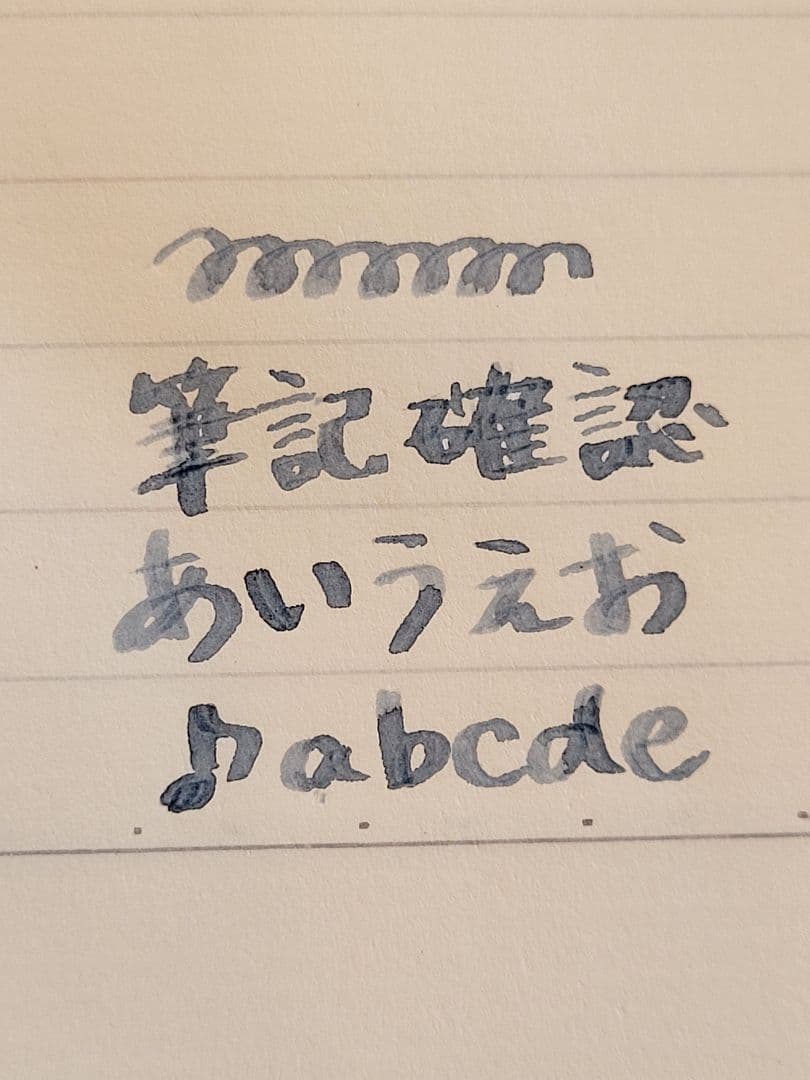 筆記確認
あいうえお
♪abcde